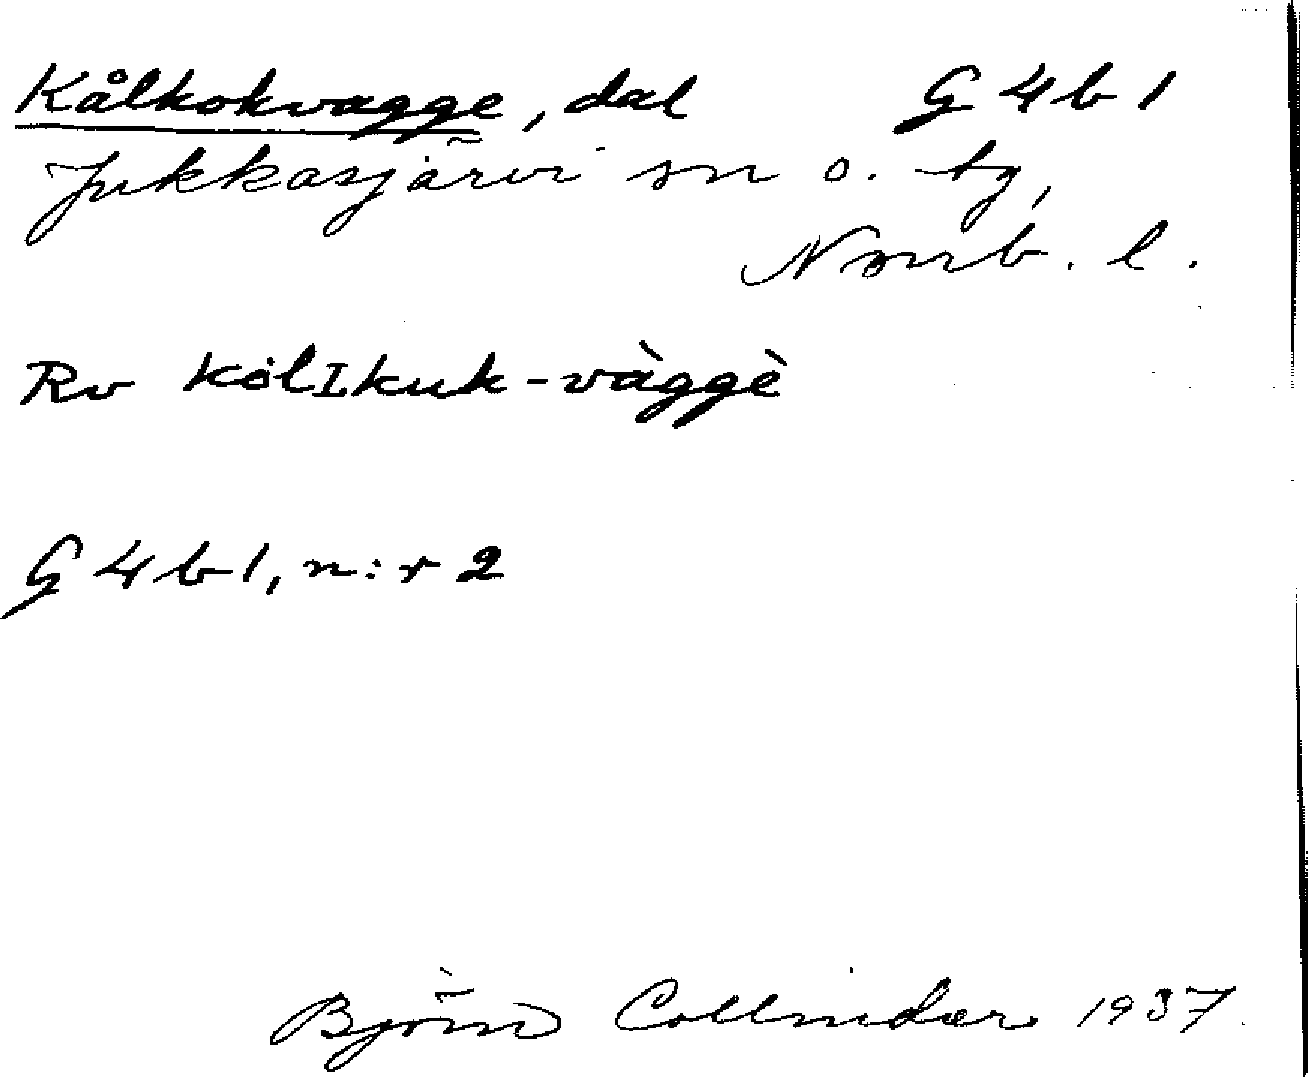 Kålkokvagge, dal G 4 b 1
Jukkasjärvi sn o. tg,
Norrb. l.
Rv kölIkuk-vàggè
G 4 b 1, n:r 2
Björn Collinder 1937